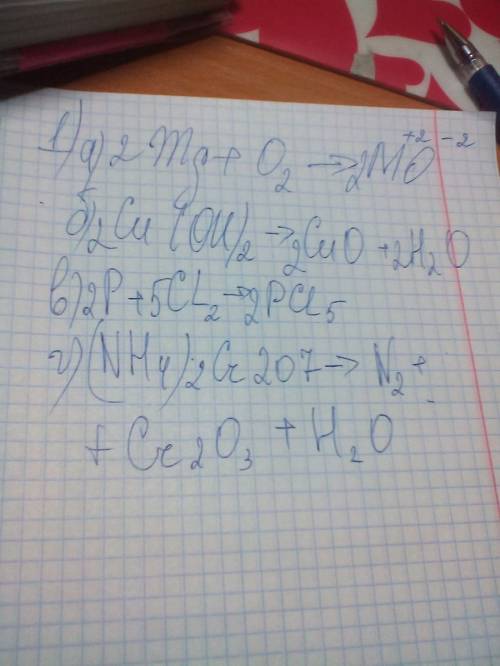 1) а) 2 Mg + O₂ → 2MO⁺² ⁻²
б) 2Cu (OH)₂ → 2CuO + 2H₂O
в) 2P + 5CL₂ → 2PCl₅
г) (NH4)2Cr2O7 → N₂ +
+ Cr2O₃ + H₂O